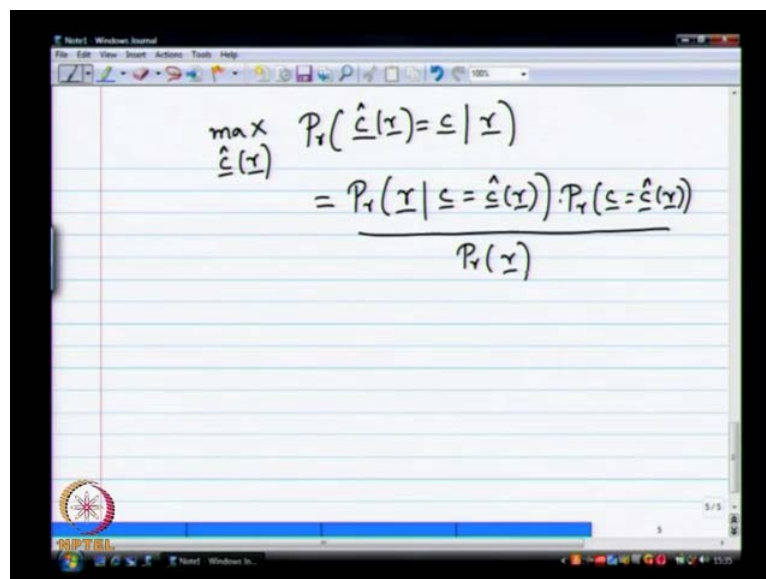 Note1 - Windows Journal
File Edit View Insert Actions Tools Help
100%
max Pr( ĉ(r) = c | r )
ĉ(r)
= Pr( r | c = ĉ(r) ) · Pr( c = ĉ(r) )
Pr( r )
5/5
5
NPTEL
Note1 - Windows In...
15:35